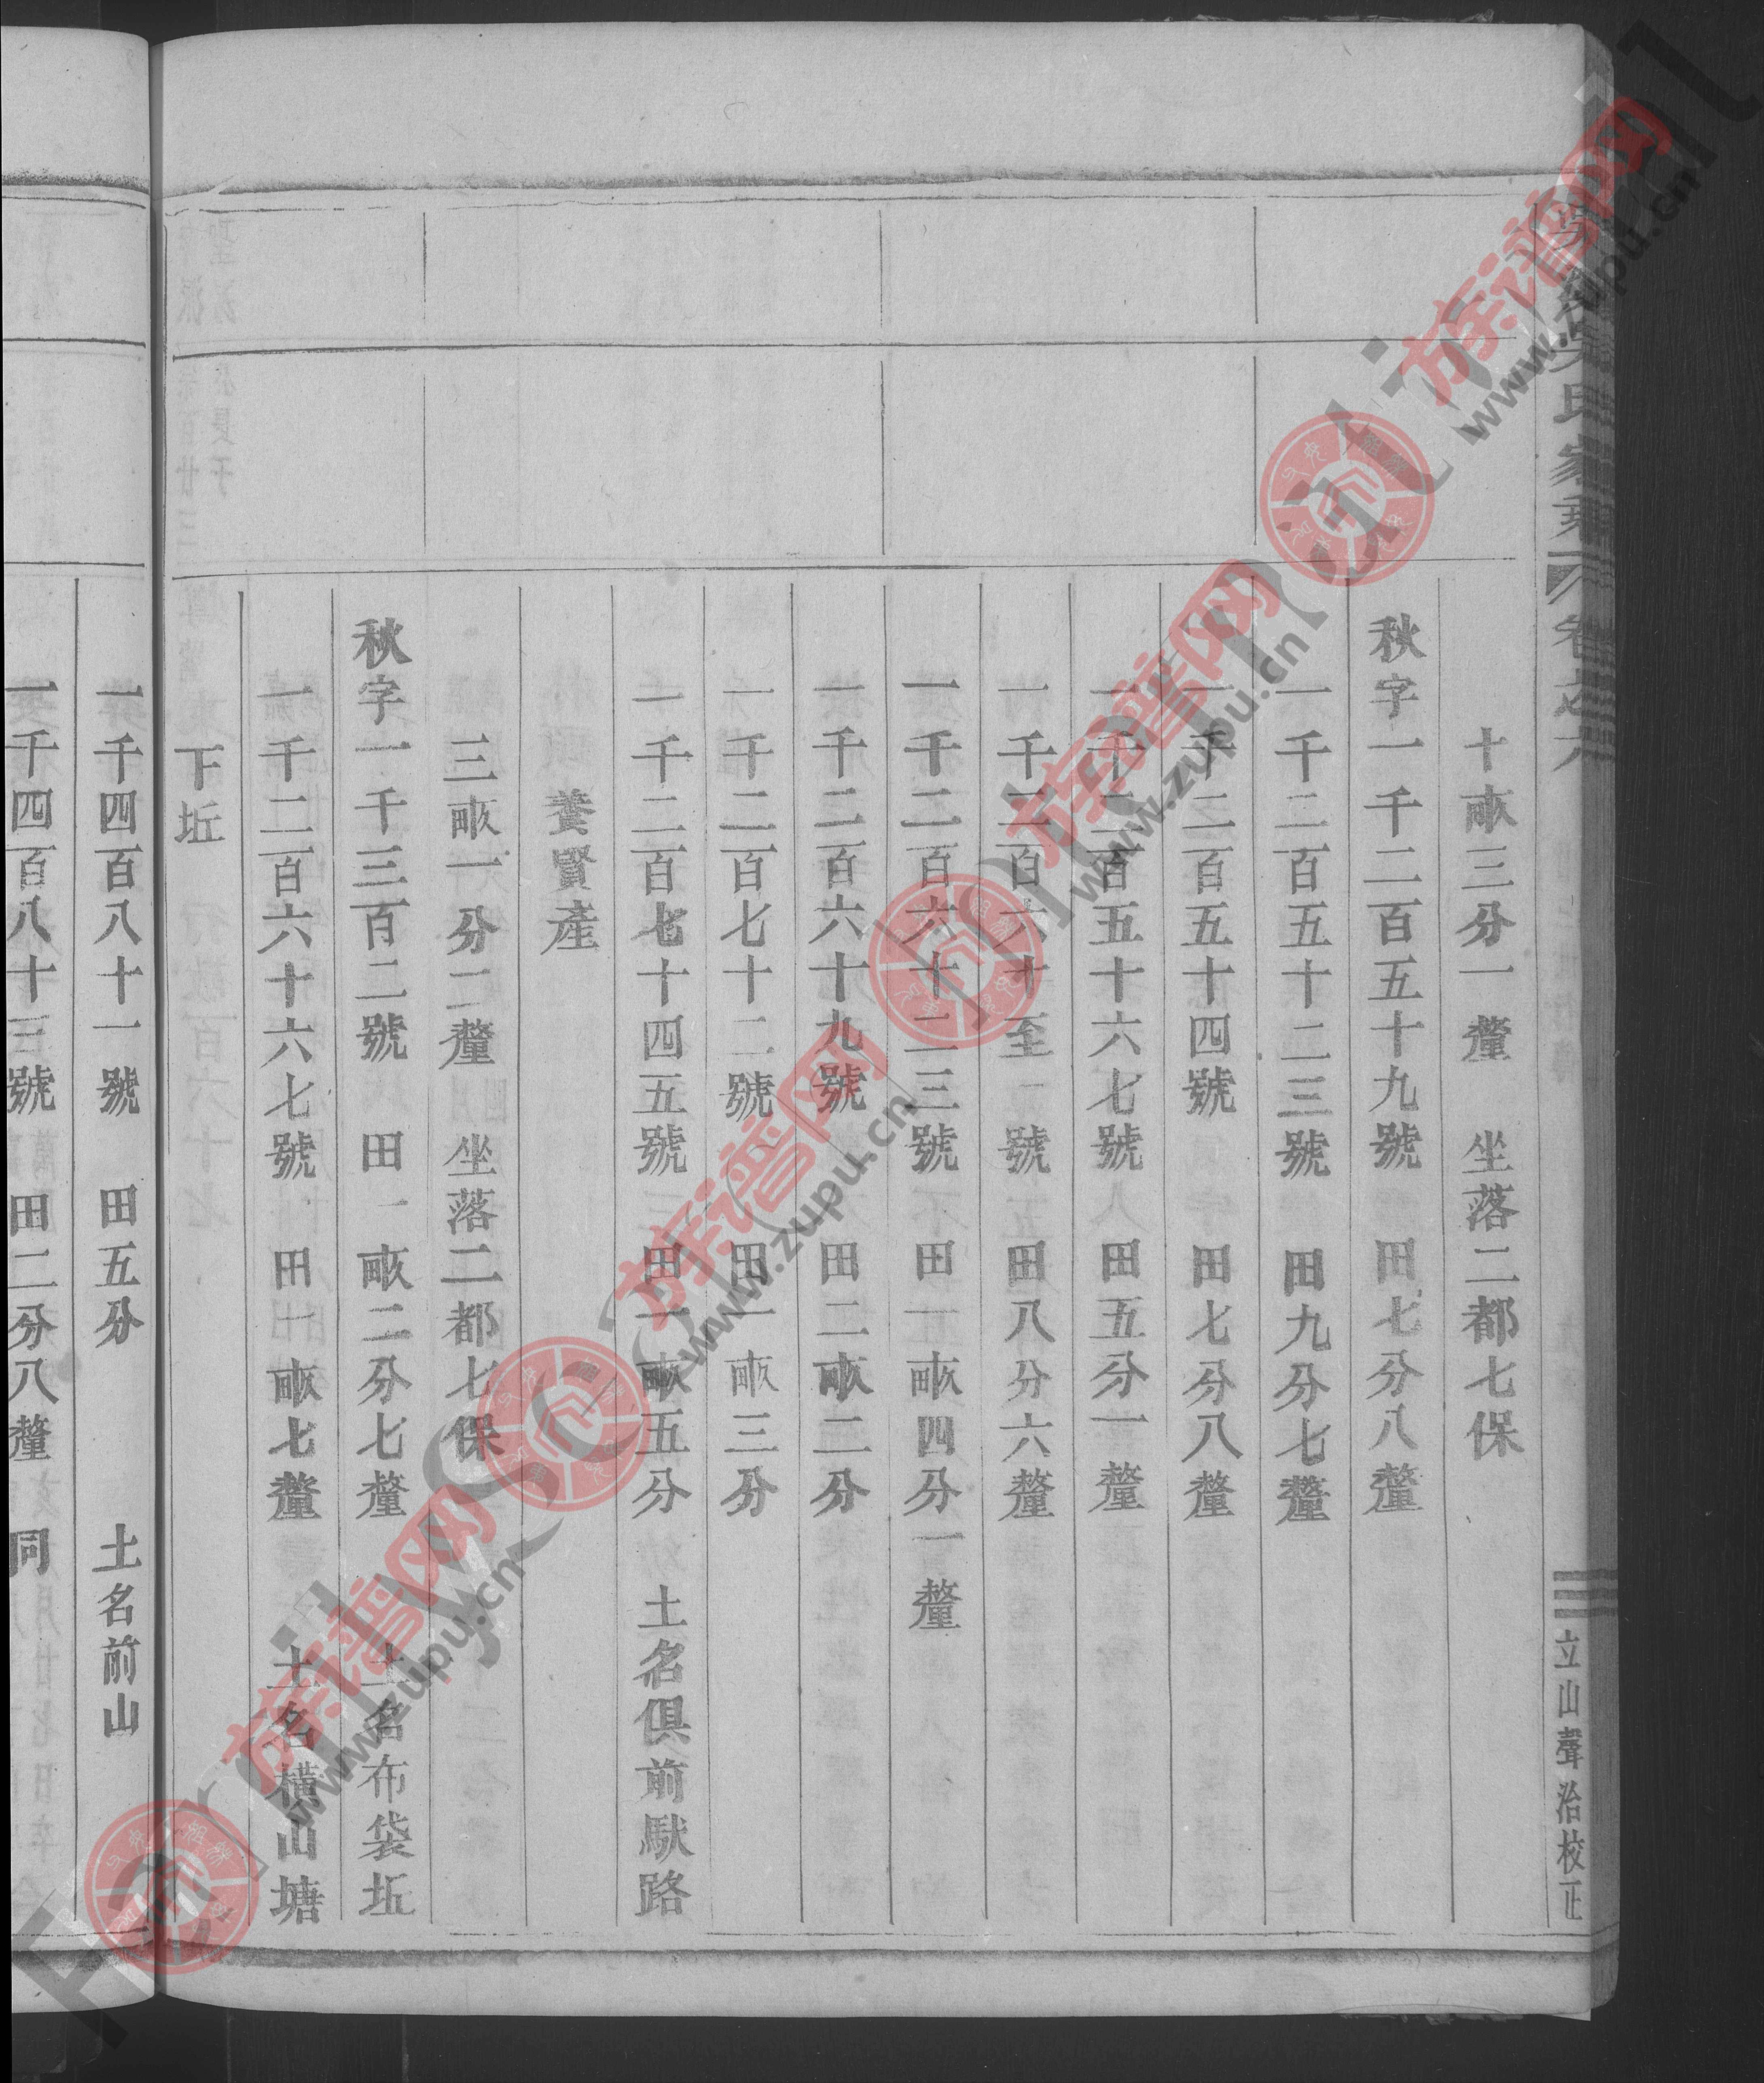 氏家乘 卷之六
立山聲治校正
十畝三分一釐 坐落二都七保
秋字一千二百五十九號 田七分八釐
一千二百五十二三號 田九分七釐
一千二百五十四號 田七分八釐
一千二百五十六七號 田五分一釐
一千二百六十至一號 田八分六釐
一千二百六十二三號 田一畝四分一釐
一千二百六十九號 田二畝二分
一千二百七十二號 田一畝三分
一千二百七十四五號 田一畝五分 土名俱前獃路
養賢產
三畝一分二釐 坐落二都七保
秋字一千三百二號 田一畝二分七釐 土名布袋坵
一千二百六十六七號 田一畝七釐 土名橫山塘
下坵
一千四百八十一號 田五分 土名前山
一千四百八十三號 田二分八釐 同
族谱网 www.zupu.cn
FamilySearch International